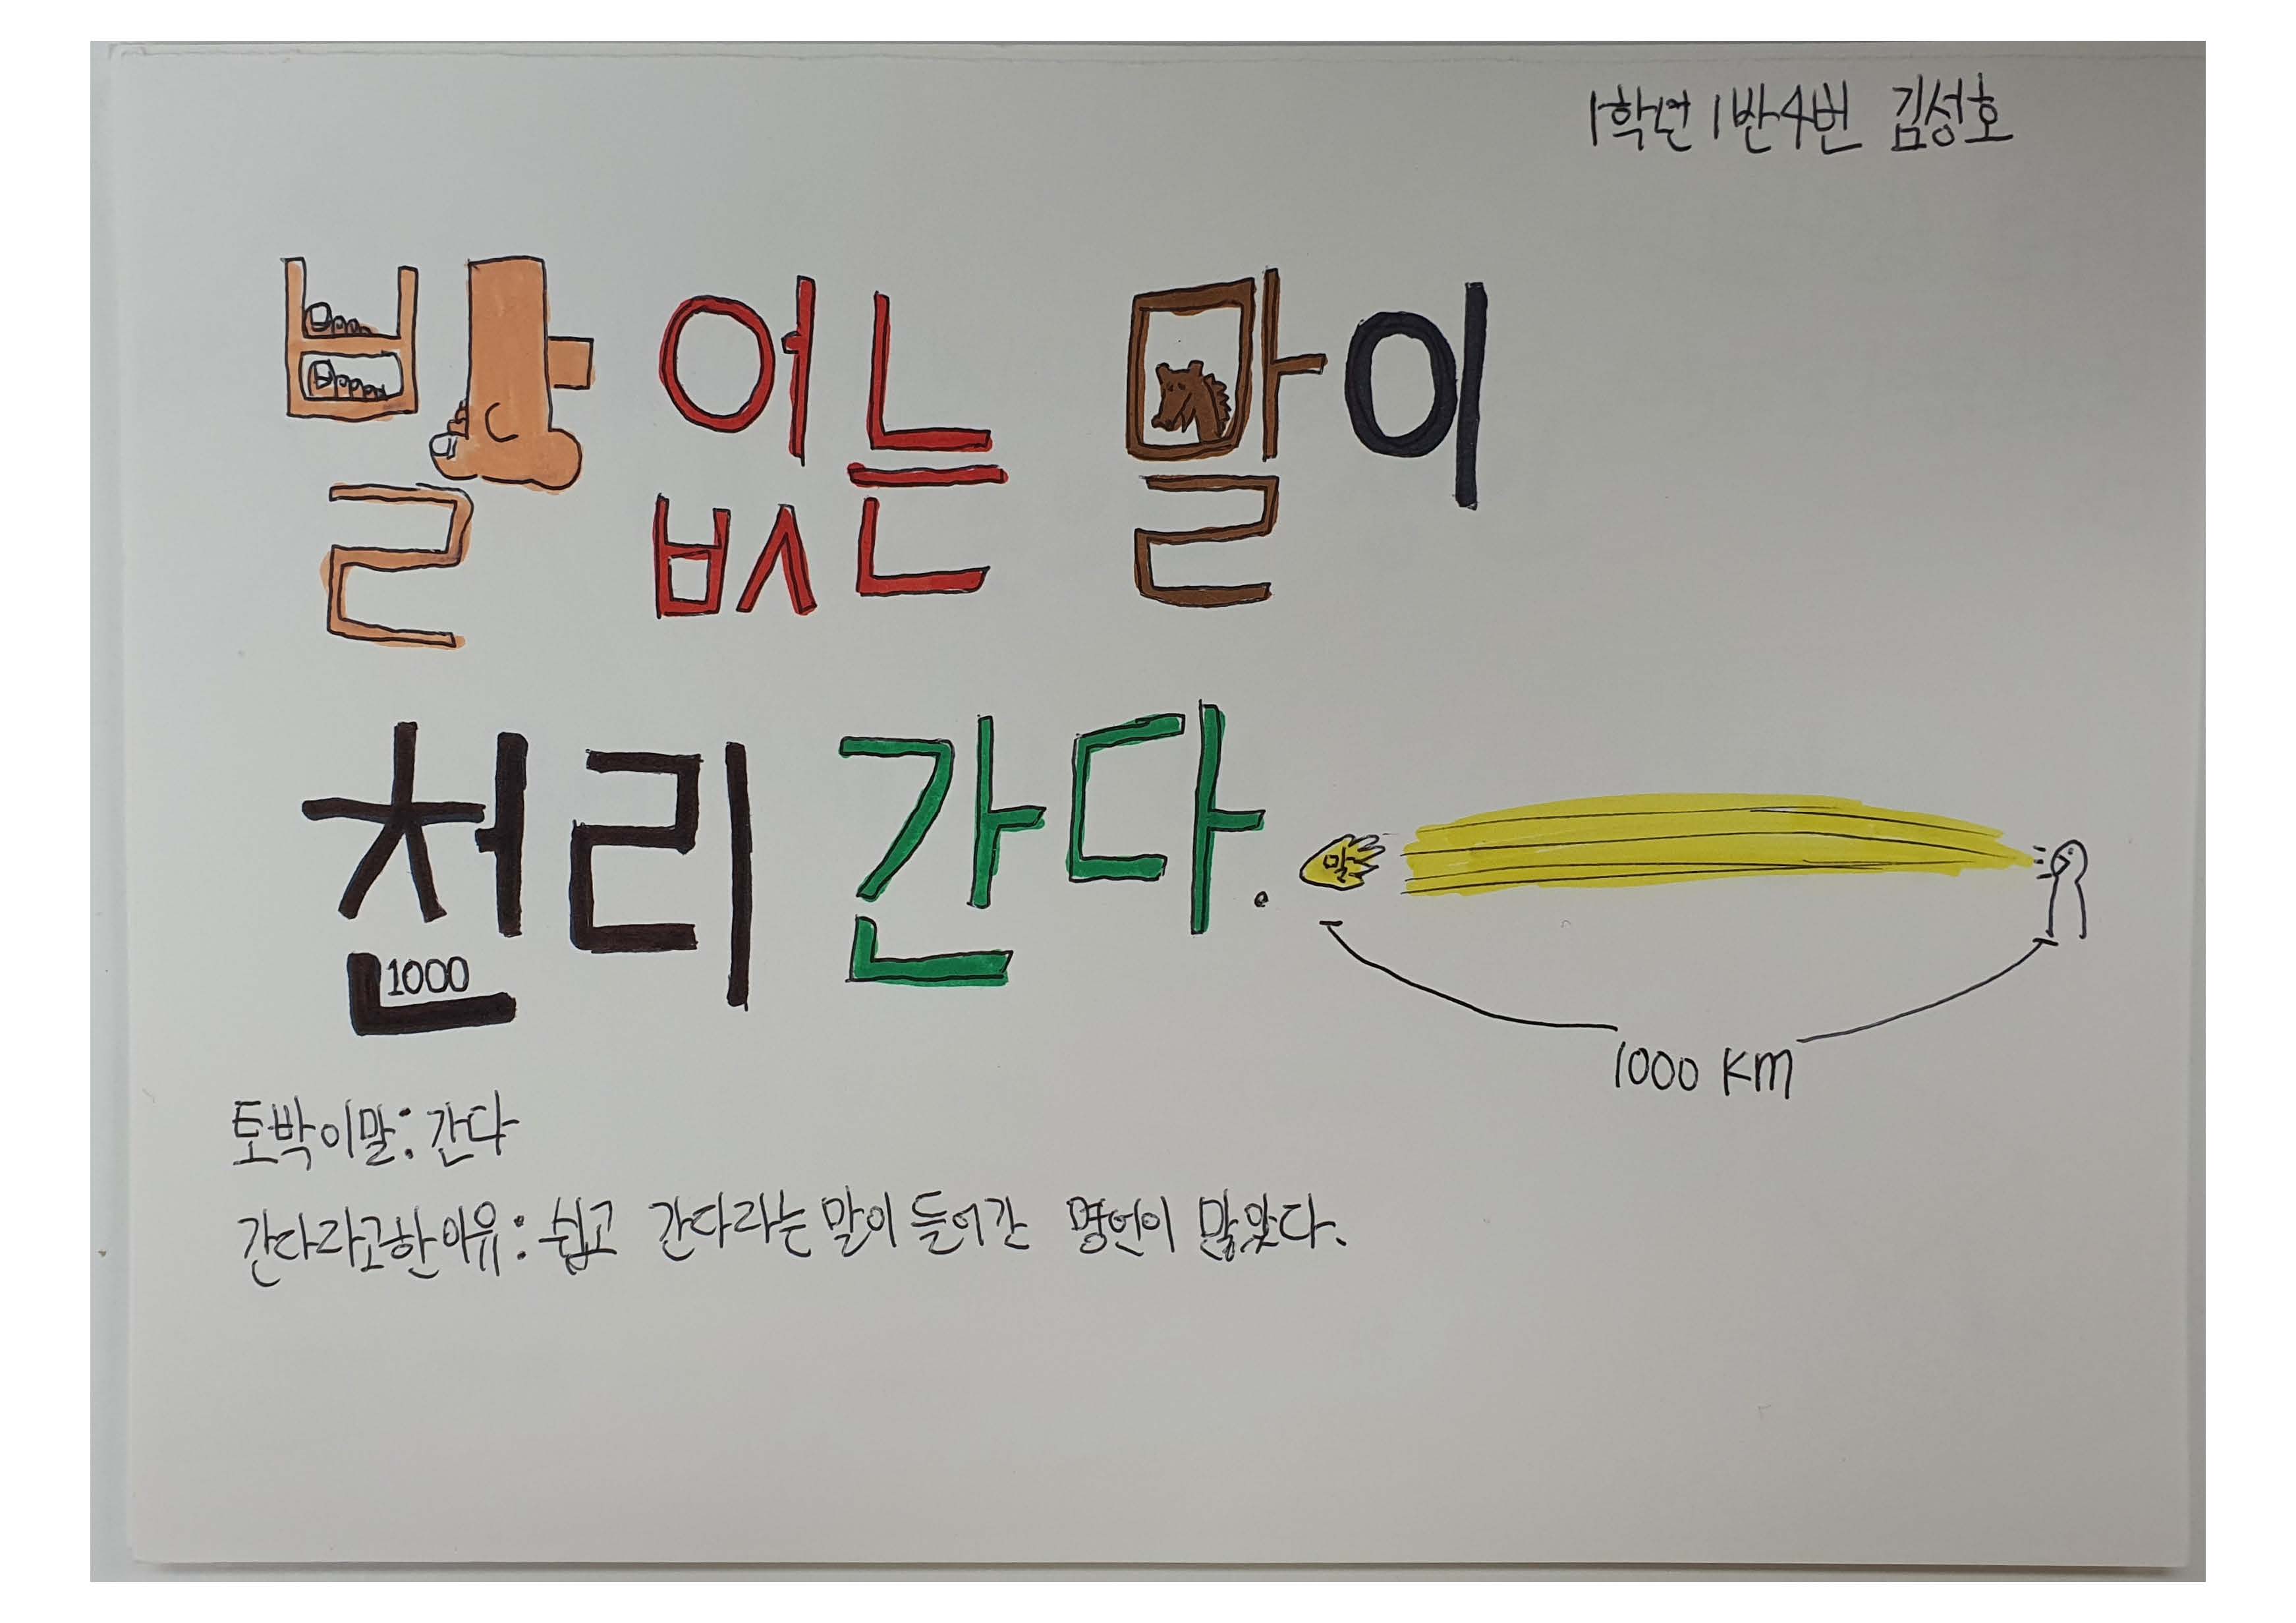 1학년 1반 4번 김성호
발 없는 말이
천리 간다.
1000
말
1000 km
토박이말: 간다
간다라고한 이유: 쉽고 간다라는 말이 들어간 명언이 많았다.